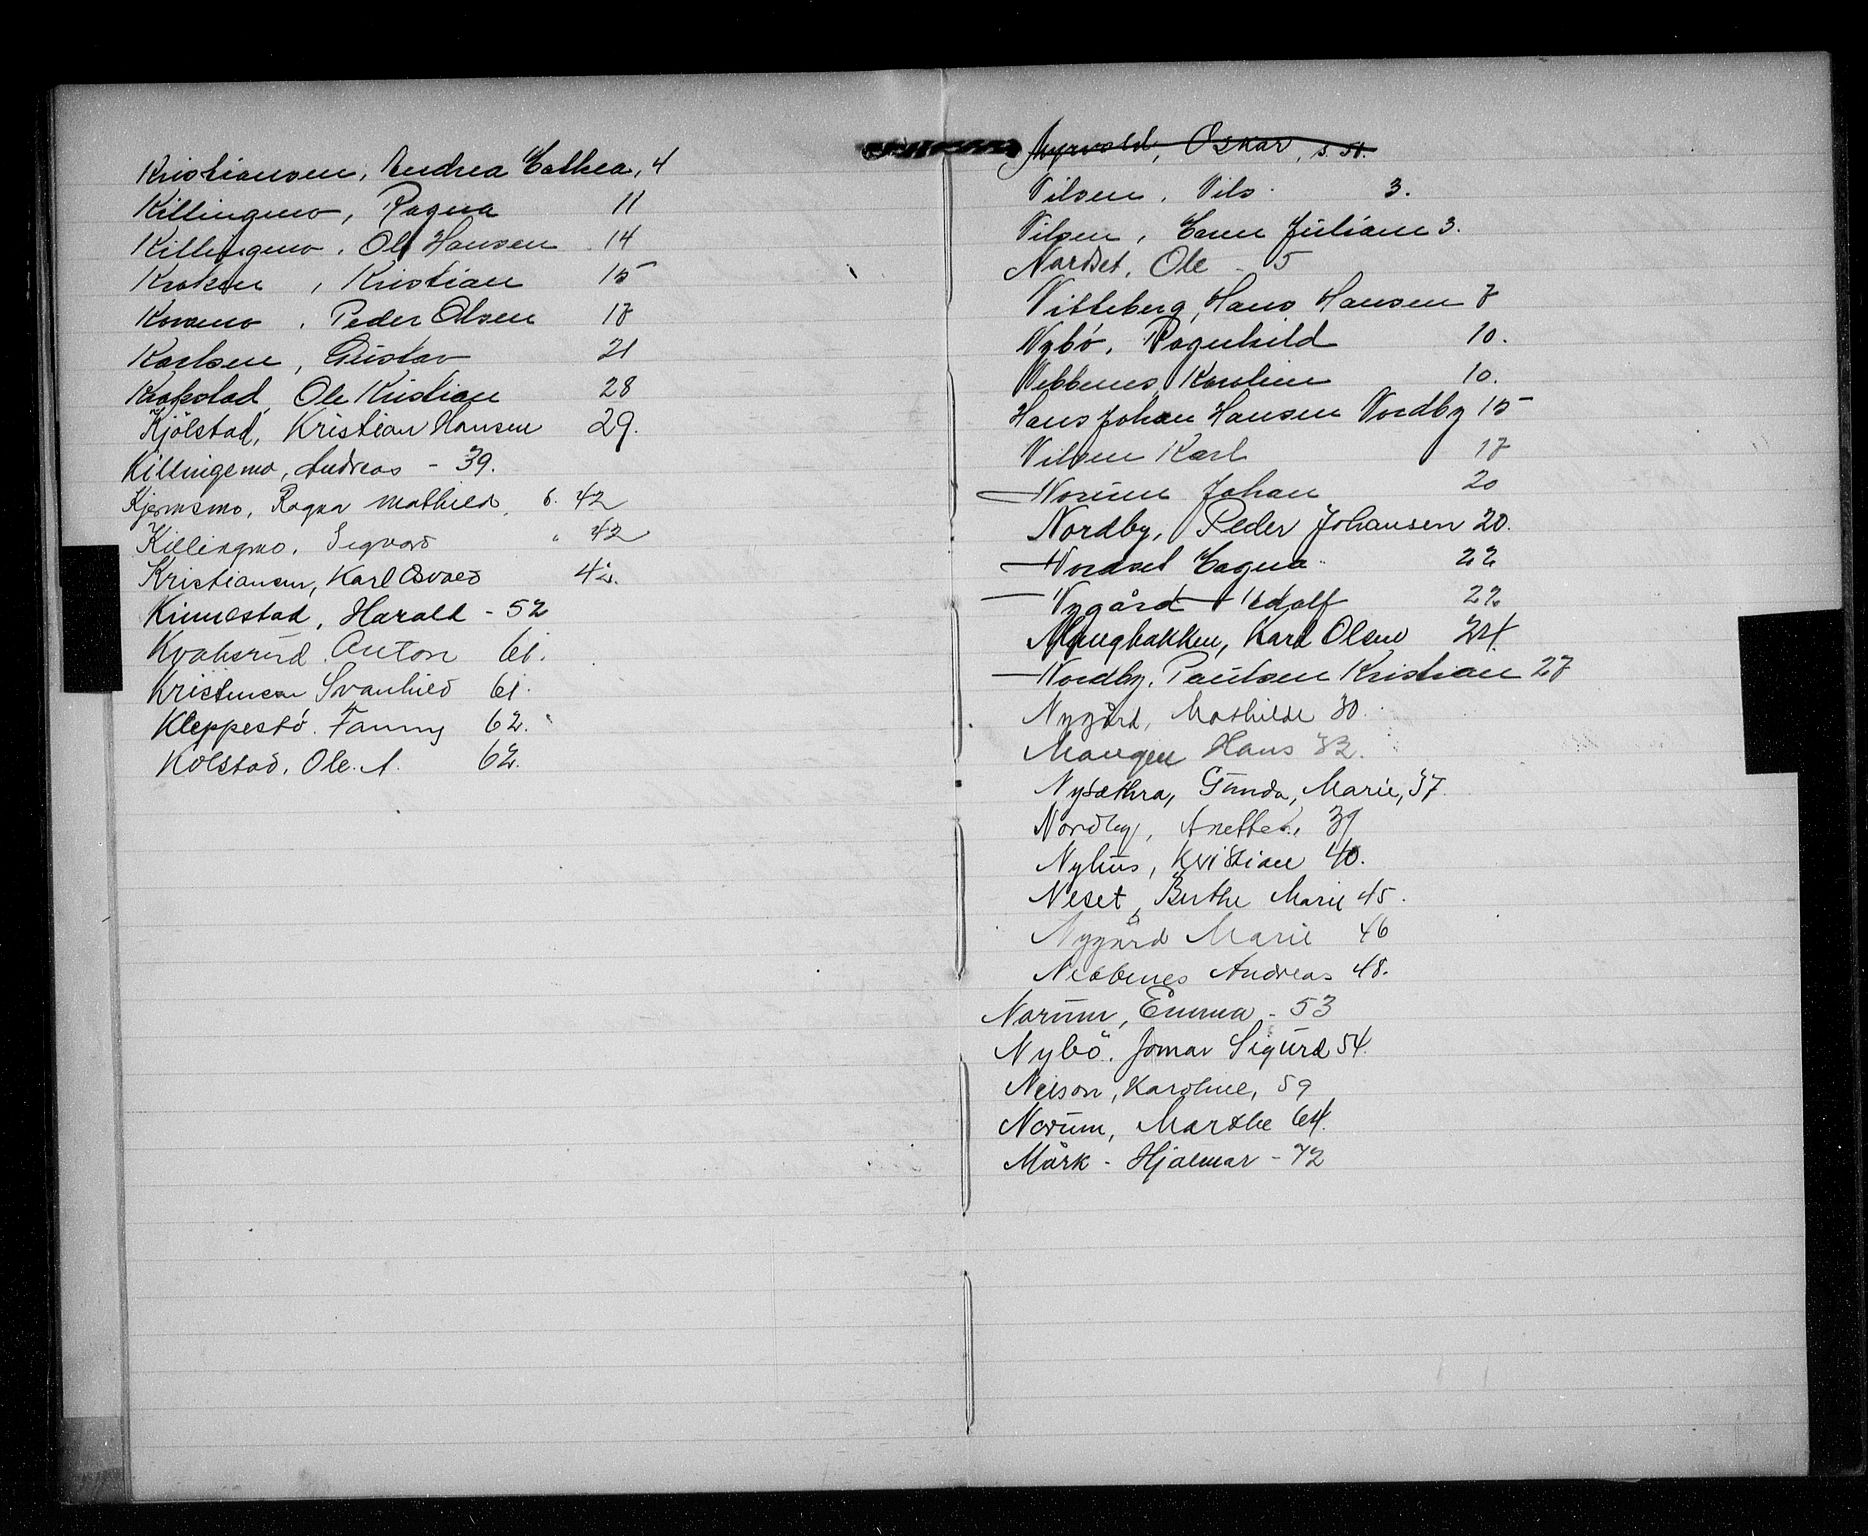 Kristiansen, Andrea Cathea, 4
Killingmo, Ragna 11
Killingmo, Ole Hansen 14
Kroken, Kristian 15
Korsmo, Peder Olsen 18
Karlsen, Gustav 21
Krakstad, Ole Kristian 28
Kjölstad, Kristian Hansen 29.
Killingemo, Andreas - 39.
Kjernsmo, Ragna Mathild, s. 42
Killingmo, Sigvard " 42
Kristiansen, Karl Osvald 42.
Kinnestad, Harald - 52
Kvaksrud. Anton 61.
Kristensen Svanhild 61.
Kleppestö. Fanny 62.
Kolstad, Ole. A. 62.
Myrvold, Oskar, s. 51.
Nilsen, Nils. 3.
Nilsen, Juliane 3.
Nordset, Ole - 5
Hans Hansen 8
Nybö, Ragnhild 10.
Nebbenes, Karoline 10.
Hans Johan Hansen Nordby 15
Nilsen Karl 18
Norum Johan 20
Nordby, Peder Johansen 20.
Nordset Magna 22
Nygård Adolf 22
Maugbakken, Karl Olsen 24.
Nordby, Paulsen Kristian 28
Nygård, Mathilde 30.
Maugen Hans 32.
Nysæthra, Gunda, Marie, 37.
Nordby, Anette. 39
Nyhus, Kristian 40.
Neset, Berthe Marie 45.
Nygård Marie 46
Nebbenes Andreas 48.
Norum, Emma - 53
Nybö. Jomar Sigurd 54.
Nelson, Karoline, 59
Norum, Marthe 64.
Mårk - Hjalmar - 72